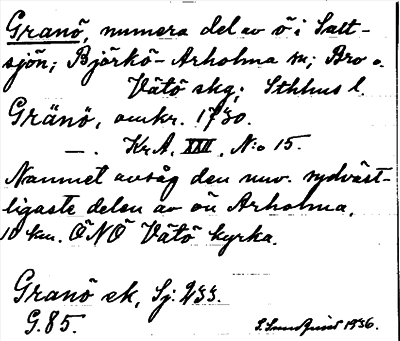 Granö, numera del av ö i Salt-
sjön; Björkö-Arholma sn; Bro o.
Vätö skg; Sthlms l.
Gränö, omkr. 1730.
—. KrA, XXII, N:o 15.
Namnet avsåg den nuv. sydväst-
ligaste delen av ön Arholma,
10 km. ÖNÖ Vätö kyrka.
Granö ek, Sj: 233.
G.85.
1936.